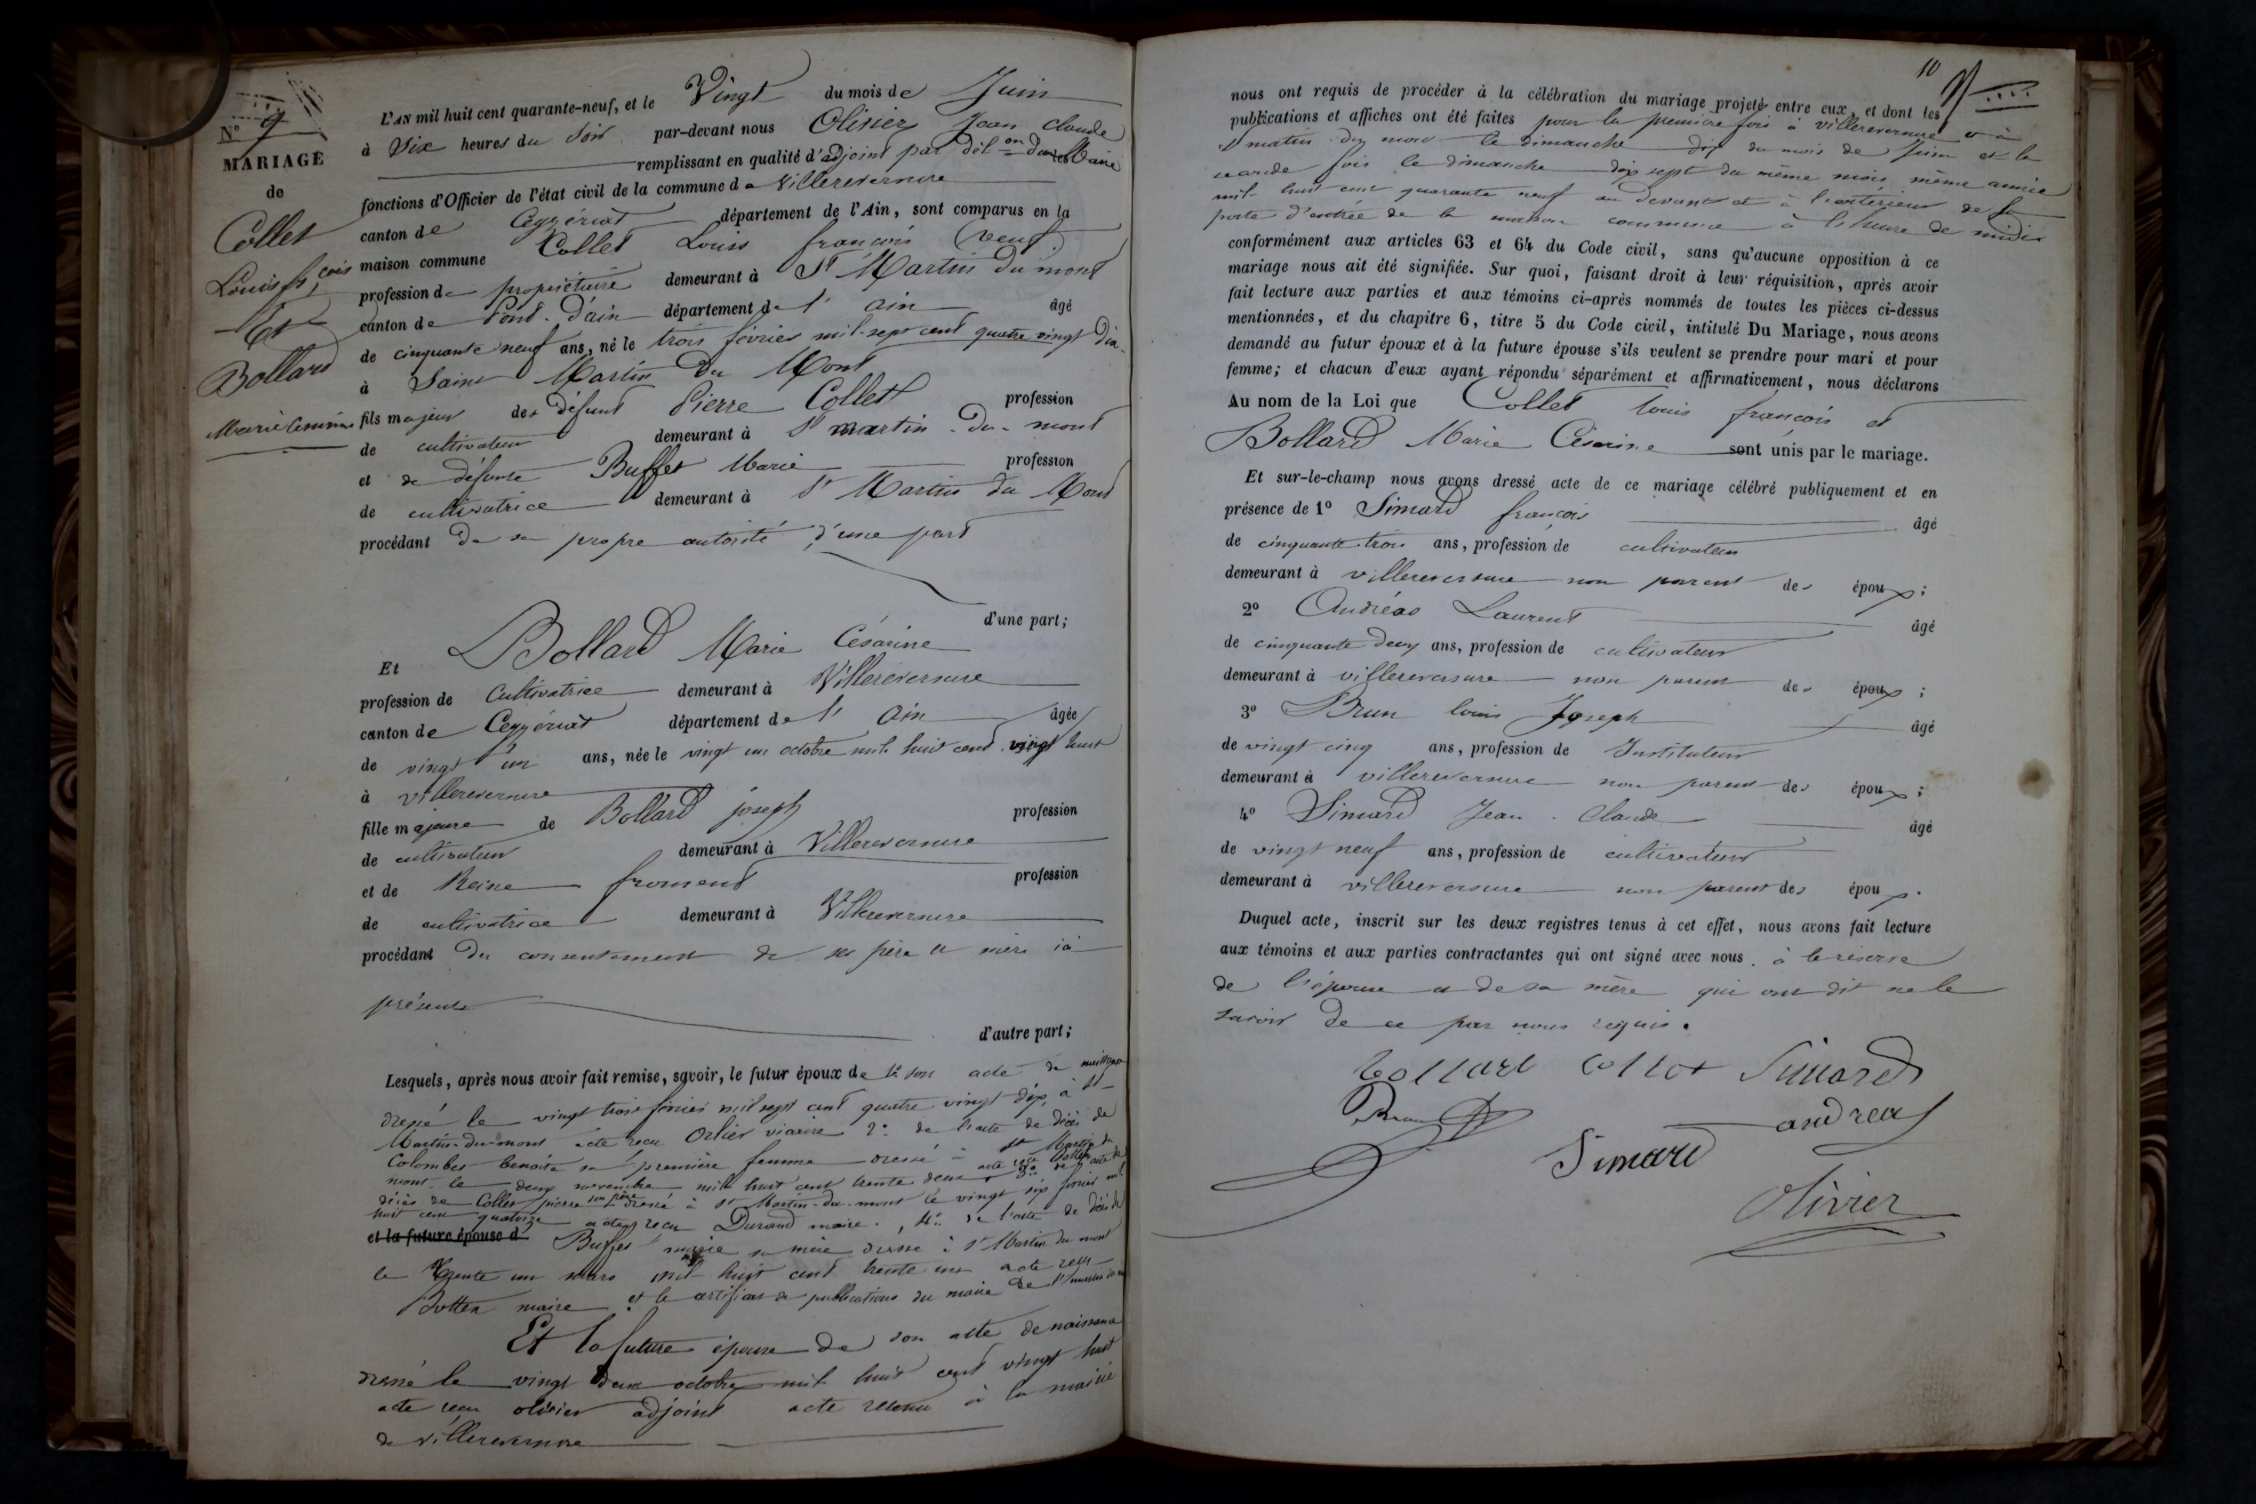 N° 9
MARIAGE
de
Collet
Louis fr.çois
Et
Bollard
Marie Césarine
L'AN mil huit cent quarante-neuf, et le Vingt du mois de Juin
à Six heures du Soir par-devant nous Olivier Jean Claude
remplissant en qualité d'adjoint par dél.on du Maire les
fonctions d'Officier de l'état civil de la commune de Villereversure
canton de Ceyzériat département de l'Ain, sont comparus en la
maison commune Collet Louis françois (veuf)
profession de propriétaire demeurant à St Martin du mont
canton de Pont-d'ain département de l'ain âgé
de cinquante neuf ans, né le trois février mil sept cent quatre vingt dix
à Saint Martin Du Mont
fils majeur des défunt Pierre Collet profession
de cultivateur demeurant à St martin-du-mont
et de défunte Buffet Marie profession
de cultivatrice demeurant à St Martin du Mont
procédant de sa propre autorité d'une part
d'une part;
Et Bollard Marie Césarine
profession de Cultivatrice demeurant à Villereversure
canton de Ceyzériat département de l'Ain âgée
de vingt un ans, née le vingt un octobre mil huit cent vingt huit
à villereversure
fille majeure de Bollard joseph profession
de cultivateur demeurant à Villereversure
et de Reine froment profession
de cultivatrice demeurant à Villereversure
procédant du consentement de ses père et mère ici
présents
d'autre part;
Lesquels, après nous avoir fait remise, savoir, le futur époux de 1° son acte de naissance
dressé le vingt trois février mil sept cent quatre vingt dix, à St
Martin-du-mont acte reçu Orlier vicaire 2° de l'acte de décès de
Colombet benoite sa première femme dressé à St Martin du
mont le deux novembre mil huit cent trente deux acte reçu Bottex 3° de l'acte de
décès de Collet pierre son père dressé à St Martin-du-mont le vingt six février mil
huit cent quatorze acte reçu Durand maire, 4° de l'acte de décès de
et la future épouse d' Buffet marie sa mère dressé à St Martin du mont
le trente un mars mil huit cent trente un acte reçu
Bottex maire et le certificat de publications du maire de St martin du mont
Et la future épouse de son acte de naissance
dressé le vingt deux octobre mil huit cent vingt huit
acte reçu olivier adjoint acte retenu à la mairie
de villereversure
10
nous ont requis de procéder à la célébration du mariage projeté entre eux, et dont les
publications et affiches ont été faites pour la première fois à villereversure et à
St martin du mont le dimanche dix du mois de Juin et la
seconde fois le dimanche dix sept du même mois même année
mil huit cent quarante neuf au devant et à l'extérieur de la
porte d'entrée de la maison commune à l'heure de midi
conformément aux articles 63 et 64 du Code civil, sans qu'aucune opposition à ce
mariage nous ait été signifiée. Sur quoi, faisant droit à leur réquisition, après avoir
fait lecture aux parties et aux témoins ci-après nommés de toutes les pièces ci-dessus
mentionnées, et du chapitre 6, titre 5 du Code civil, intitulé Du Mariage, nous avons
demandé au futur époux et à la future épouse s'ils veulent se prendre pour mari et pour
femme; et chacun d'eux ayant répondu séparément et affirmativement, nous déclarons
Au nom de la Loi que Collet louis françois et
Bollard Marie Césarine sont unis par le mariage.
Et sur-le-champ nous avons dressé acte de ce mariage célébré publiquement et en
présence de 1° Simard françois âgé
de cinquante trois ans, profession de cultivateur
demeurant à villereversure non parent des époux;
2° Andréas Laurent âgé
de cinquante deux ans, profession de cultivateur
demeurant à villereversure non parent des époux;
3° Brun louis Joseph âgé
de vingt cinq ans, profession de Instituteur
demeurant à villereversure non parent des époux;
4° Simard Jean-Claude âgé
de vingt neuf ans, profession de cultivateur
demeurant à villereversure non parent des époux.
Duquel acte, inscrit sur les deux registres tenus à cet effet, nous avons fait lecture
aux témoins et aux parties contractantes qui ont signé avec nous. à la réserve
de l'épouse et de sa mère qui ont dit ne le
savoir de ce par nous requis.
bollard collet Simard
Brun andreas
Simard
Olivier